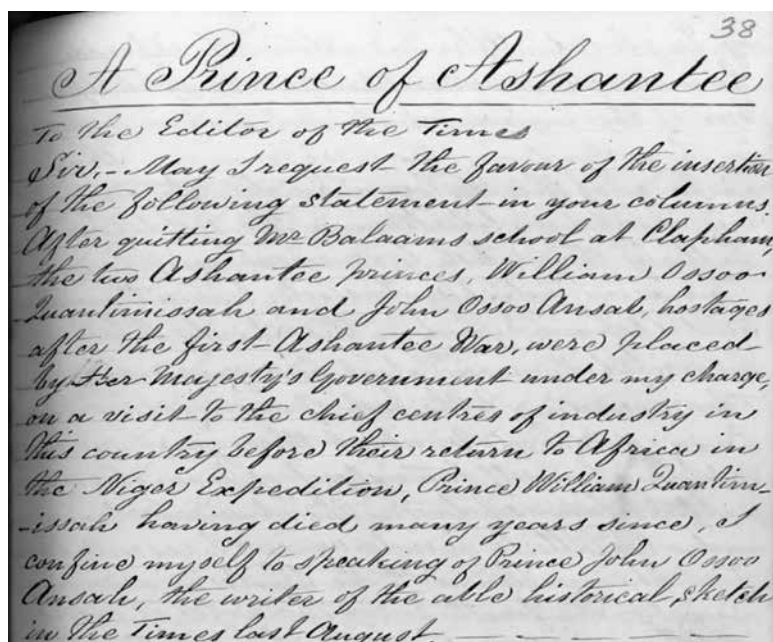 38
A Prince of Ashantee
To the Editor of the Times
Sir,- May I request the favour of the insertion
of the following statement in your columns.
After quitting Mr Balaams school at Clapham,
the two Ashantee princes, William Ossoo
Quantimissah and John Ossoo Ansah, hostages
after the first Ashantee War, were placed
by Her Majesty's Government under my charge,
on a visit to the chief centres of industry in
this country before their return to Africa in
the Niger Expedition, Prince William Quantim-
-issah having died many years since, I
confine myself to speaking of Prince John Ossoo
Ansah, the writer of the able historical sketch
in the Times last August.